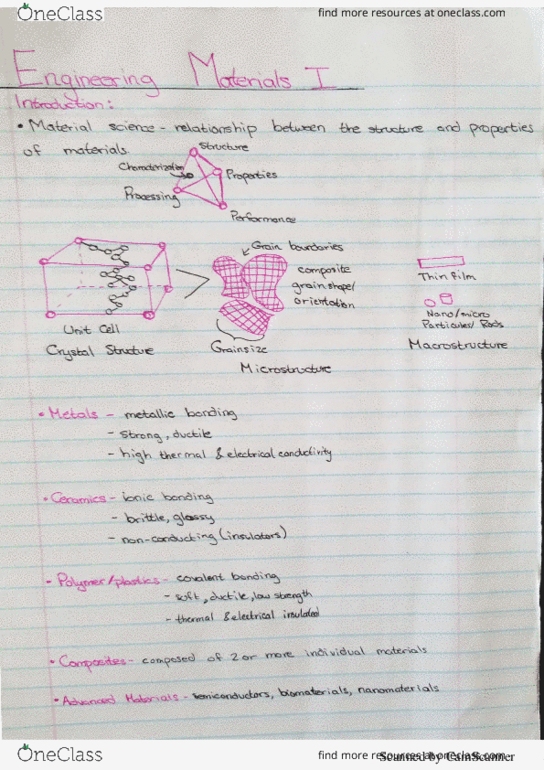 OneClass
find more resources at oneclass.com
Engineering Materials I
Introduction:
• Material science - relationship between the structure and properties
of materials.
Structure
Characterization
Properties
Processing
Performance
Grain boundaries
composite
grain shape/
orientation
Thin film
Nano/micro
Particules/ Rods
Unit Cell
Crystal Structure
Grainsize
Microstructure
Macrostructure
• Metals - metallic bonding
- strong, ductile
- high thermal & electrical conductivity
• Ceramics - ionic bonding
- brittle, glassy
- non-conducting (insulators)
• Polymer/plastics - covalent bonding
- soft, ductile, low strength
- thermal & electrical insulated
• Composites - composed of 2 or more individual materials
• Advanced Materials - semiconductors, biomaterials, nanomaterials
OneClass
find more resources at oneclass.com
Scanned by CamScanner